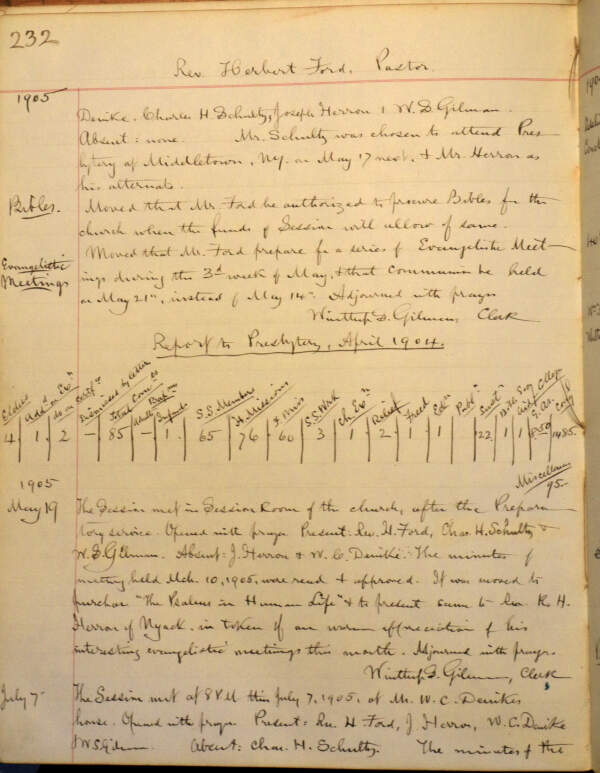 232
Rev. Herbert Ford, Pastor.
1905
Denike, Charles H. Schultz, Joseph Herron & W. S. Gilman.
Absent: none. Mr. Schultz was chosen to attend Pres-
bytery at Middletown, N.Y. on May 17 next, & Mr. Herron as
his alternate.
Bibles.
Moved that Mr. Ford be authorized to procure Bibles for the
church when the funds of Session will allow of same.
Evangelistic
Meetings
Moved that Mr. Ford prepare for a series of Evangelistic Meet-
ings during the 3d week of May, & that Communion be held
on May 21st, instead of May 14th. Adjourned with prayer
Winthrop S. Gilman, Clerk
Report to Presbytery, April 1904.
Elders Add. on Ex. do on Certif. Dismissed by letter Total Com. Adult Bap. Infant S.S. Members H. Missions F. Miss S.S. Work Ch. Ex. Relief Freed Ed. Pub. Sust. Bible Soc. College G. As. Cong.
4 1 2 – 85 – 1 65 76 60 3 1 2 1 1 22 1 1 8.50 1485.
Miscellaneous
95.
1905
May 19
The Session met in Session Room of the church, after the Prepara-
tory service. Opened with prayer. Present: Rev. H. Ford, Chas. H. Schultz &
W. S. Gilman. Absent: J. Herron & W. C. Denike. The minutes of
meeting held Mch. 10, 1905, were read & approved. It was moved to
purchase "The Psalms in Human Life" & to present same to Rev. R. H.
Herron of Nyack, in token of our warm appreciation of his
interesting evangelistic meetings this month. Adjourned with prayer.
Winthrop S. Gilman, Clerk
July 7
The Session met at 8 P.M. this July 7, 1905, at Mr. W. C. Denikes
house. Opened with prayer. Present: Rev. H. Ford, J. Herron, W. C. Denike
& W. S. Gilman. Absent: Chas. H. Schultz. The minutes of the